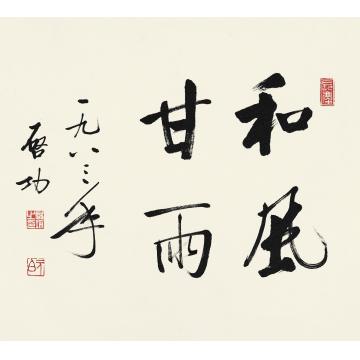 和風
甘雨
一九八三年
啓功